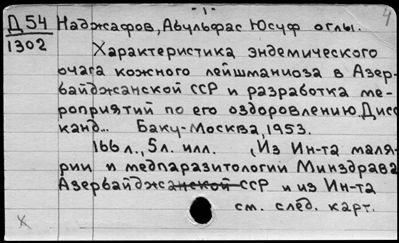 - 1 -
4
Д 54 Наджафов, Абульфас Юсуф оглы.
1302
Характеристика эндемического
очага кожного лейшманиоза в Азер-
байджанской ССР и разработка ме-
роприятий по его оздоровлению. Дисс
канд... Баку-Москва, 1953.
166 л., 5 л. илл. (Из Ин-та маля-
рии и медпаразитологии Минздрава
Азербайджанской ССР и из Ин-та
см. след. карт.